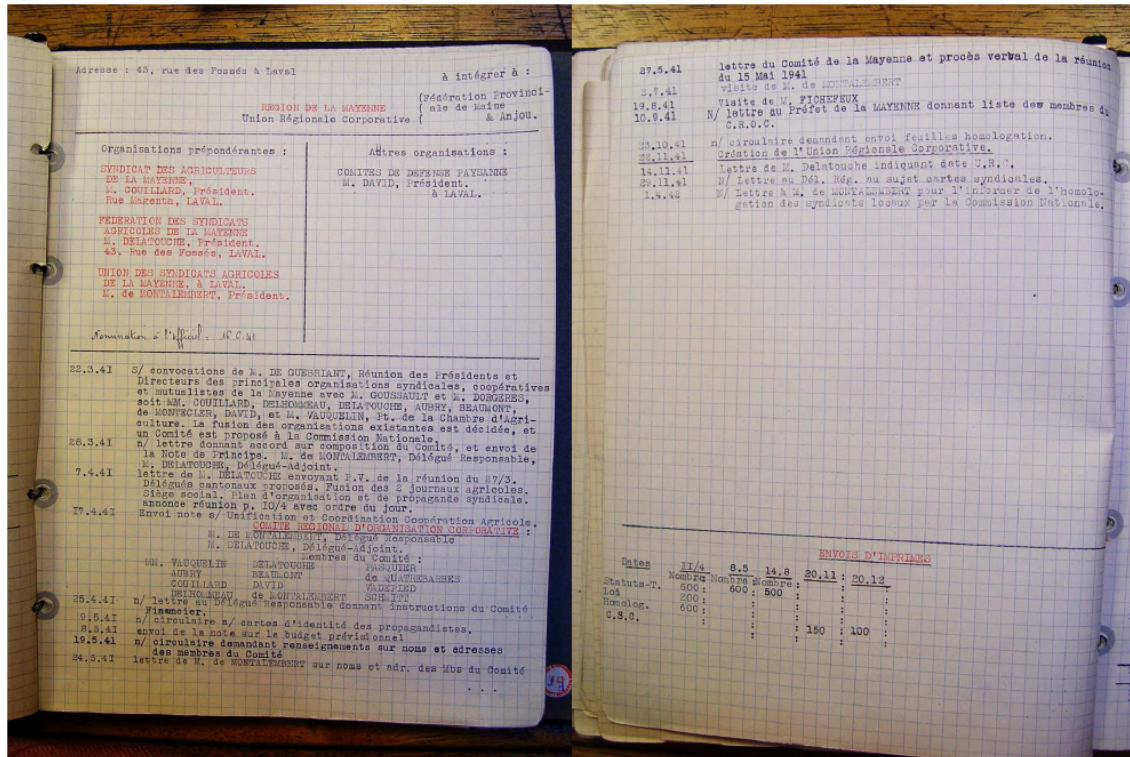 Adresse : 43, rue des Fossés à Laval
à intégrer à :
REGION DE LA MAYENNE
Union Régionale Corporative
(Fédération Provinci-
ale de Maine
& Anjou.
Organisations prépondérantes :
SYNDICAT DES AGRICULTEURS
DE LA MAYENNE,
M. COUILLARD, Président.
Rue Magenta, LAVAL.
FEDERATION DES SYNDICATS
AGRICOLES DE LA MAYENNE
M. DELATOUCHE, Président.
43. Rue des Fossés, LAVAL.
UNION DES SYNDICATS AGRICOLES
DE LA MAYENNE, à LAVAL.
M. de MONTALEMBERT, Président.
Autres organisations :
COMITES DE DEFENSE PAYSANNE
M. DAVID, Président.
à LAVAL.
Nomination à l'Officiel : 16.5.41
22.3.41 S/ convocations de M. DE GUEBRIANT, Réunion des Présidents et
Directeurs des principales organisations syndicales, coopératives
et mutualistes de la Mayenne avec M. GOUSSAULT et M. DORGERES,
soit MM. COUILLARD, DELHOMMEAU, DELATOUCHE, AUBRY, BEAUMONT,
de MONTECLER, DAVID, et M. VAUQUELIN, Pt. de la Chambre d'Agri-
culture. La fusion des organisations existantes est décidée, et
un Comité est proposé à la Commission Nationale.
28.3.41 n/ lettre donnant accord sur composition du Comité, et envoi de
la Note de Principe. M. de MONTALEMBERT, Délégué Responsable,
M. DELATOUCHE, Délégué-Adjoint.
7.4.41 lettre de M. DELATOUCHE envoyant P.V. de la réunion du 27/3.
Délégués cantonaux proposés. Fusion des 2 journaux agricoles.
Siège social. Plan d'organisation et de propagande syndicale.
annonce réunion p. 10/4 avec ordre du jour.
17.4.41 Envoi note s/ Unification et Coordination Coopération Agricole.
COMITE REGIONAL D'ORGANISATION CORPORATIVE :
M. DE MONTALEMBERT, Délégué Responsable
M. DELATOUCHE, Délégué-Adjoint.
Membres du Comité :
MM. VAUQUELIN DELATOUCHE PASQUIER
AUBRY BEAUMONT de QUATREBARBES
COUILLARD DAVID VADEPIED
DELHOMMEAU de MONTALEMBERT SCHMITT
25.4.41 n/ lettre au Délégué Responsable donnant instructions du Comité
Financier.
9.5.41 n/ circulaire s/ cartes d'identité des propagandistes.
8.5.41 envoi de la note sur le budget prévisionnel
19.5.41 n/ circulaire demandant renseignements sur noms et adresses
des membres du Comité
24.5.41 lettre de M. de MONTALEMBERT sur noms et adr. des Mbs du Comité
. . .
27.5.41 lettre du Comité de la Mayenne et procès verbal de la réunion
du 15 Mai 1941
2.7.41 visite de M. de MONTALEMBERT
19.8.41 Visite de M. FICHEFEUX
10.9.41 N/ lettre au Préfet de la MAYENNE donnant liste des membres du
C.R.O.C.
23.10.41 n/ circulaire demandant envoi feuilles homologation.
22.11.41 Création de l'Union Régionale Corporative.
14.11.41 Lettre de M. Delatouche indiquant date U.R.C.
29.11.41 N/ Lettre au Dél. Rég. au sujet cartes syndicales.
1.4.42 N/ Lettre à M. de MONTALEMBERT pour l'informer de l'homolo-
gation des syndicats locaux par la Commission Nationale.
ENVOIS D'IMPRIMES
Dates II/4 8.5 14.8 20.11 : 20.12
Nombre Nombre Nombre :
Statuts-T. 600 : 600 : 500
Loi 200 :
Homolog. 600 :
C.S.C. : 150 : 100 :